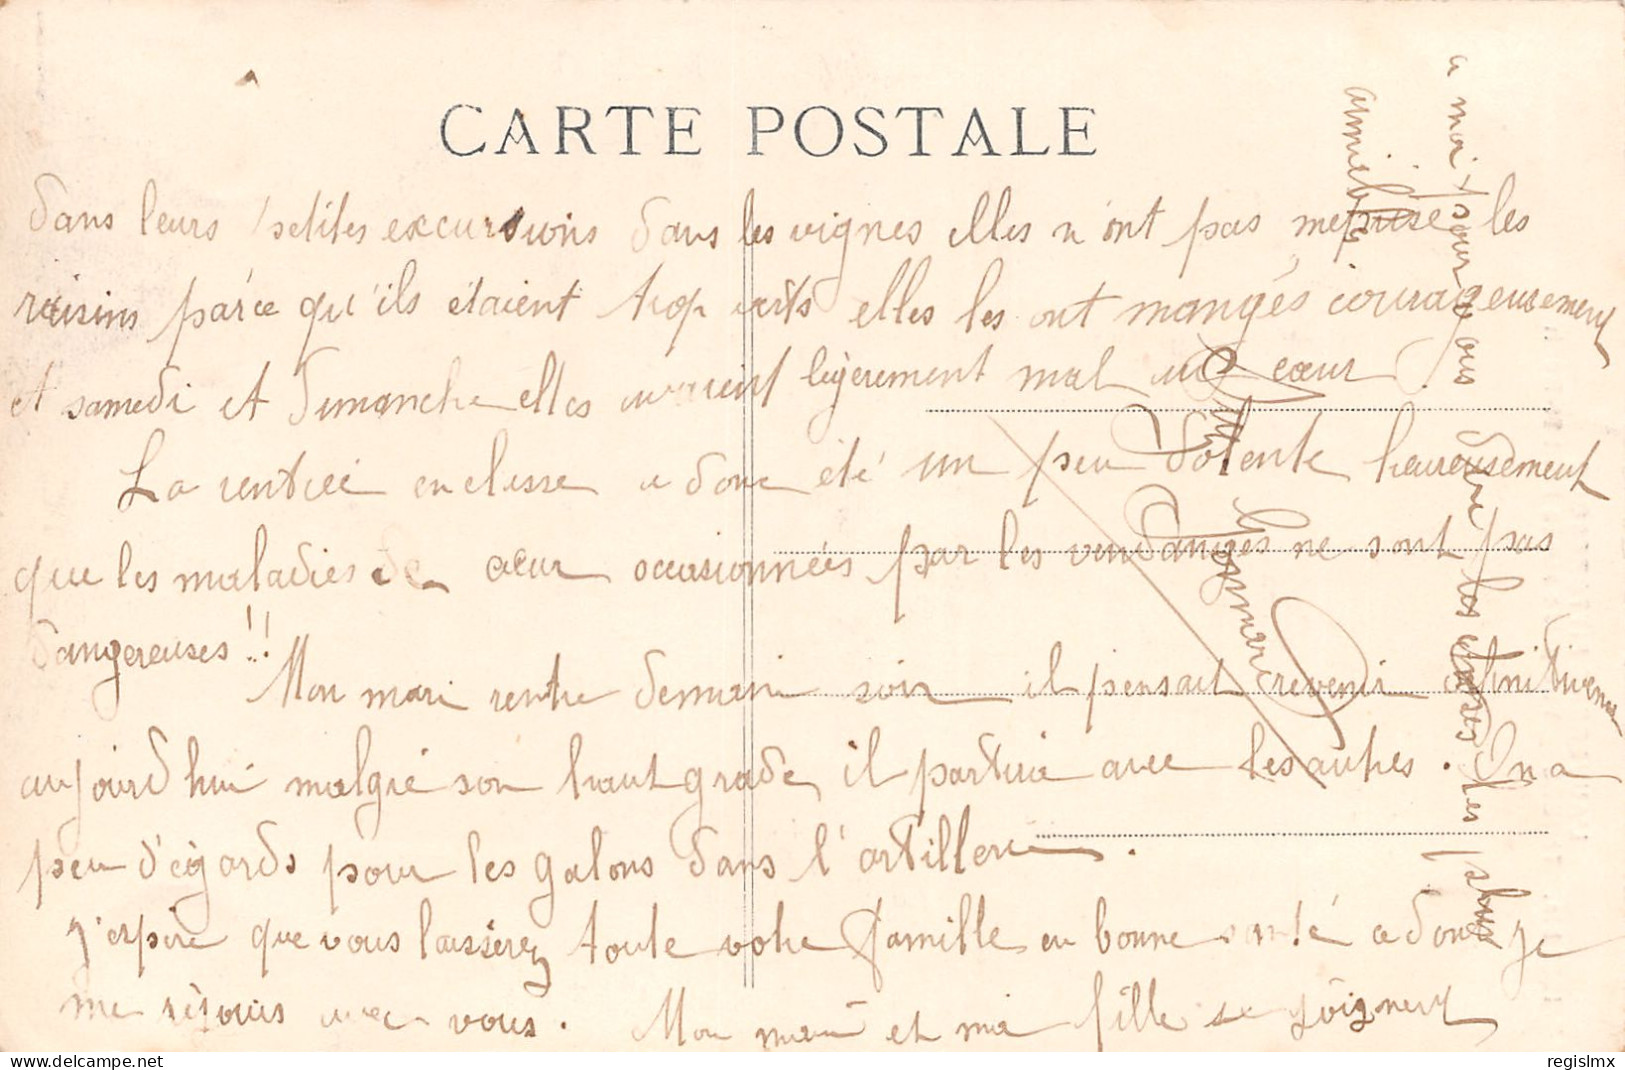 CARTE POSTALE
dans leurs petites excursions dans les vignes elles n'ont pas meprise les
raisins parce qu'ils étaient trop verts elles les ont mangés courageusement
et samedi et dimanche elles avaient légèrement mal au cœur
La rentrée en classe a donc été un peu dolente heureusement
que les maladies de cœur occasionnées par les vendanges ne sont pas
dangereuses !!
Mon mari rentre demain soir il pensait revenir définitivement
aujourd'hui malgré son haut grade, il partira avec les autres. On a
peu d'égards pour les galons dans l'artillerie.
J'espère que vous laisserez toute votre famille en bonne santé a donc je
me réjouis avec vous. Mon mari et ma fille se joignent
a moi pour vous dire les choses les plus
amicales